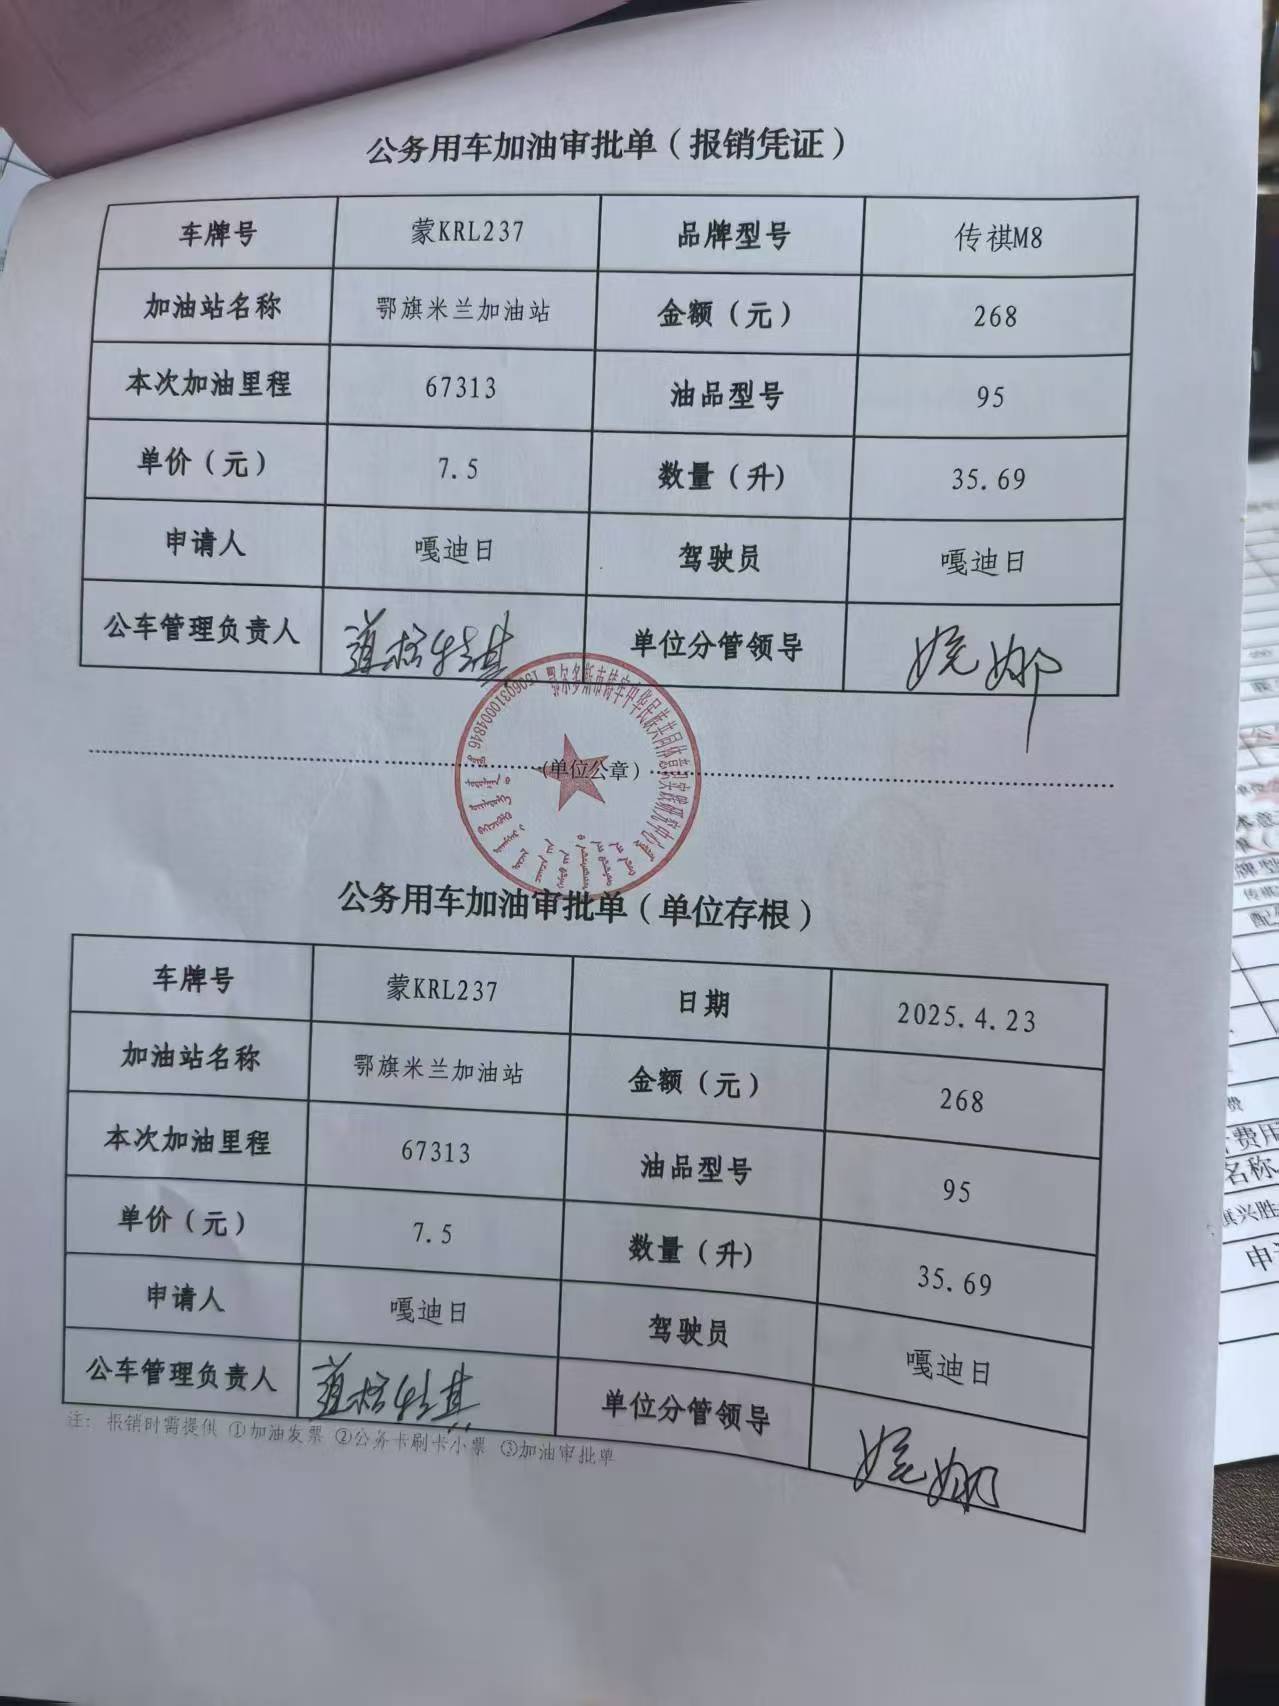 公务用车加油审批单（报销凭证）
车牌号 蒙KRL237 品牌型号 传祺M8
加油站名称 鄂旗米兰加油站 金额（元） 268
本次加油里程 67313 油品型号 95
单价（元） 7.5 数量（升） 35.69
申请人 嘎迪日 驾驶员 嘎迪日
公车管理负责人 单位分管领导 娆娜
15060310004846
（单位公章）
公务用车加油审批单（单位存根）
车牌号 蒙KRL237 日期 2025.4.23
加油站名称 鄂旗米兰加油站 金额（元） 268
本次加油里程 67313 油品型号 95
单价（元） 7.5 数量（升） 35.69
申请人 嘎迪日 驾驶员 嘎迪日
公车管理负责人 单位分管领导 娆娜
注：报销时需提供 ①加油发票 ②公务卡刷卡小票 ③加油审批单